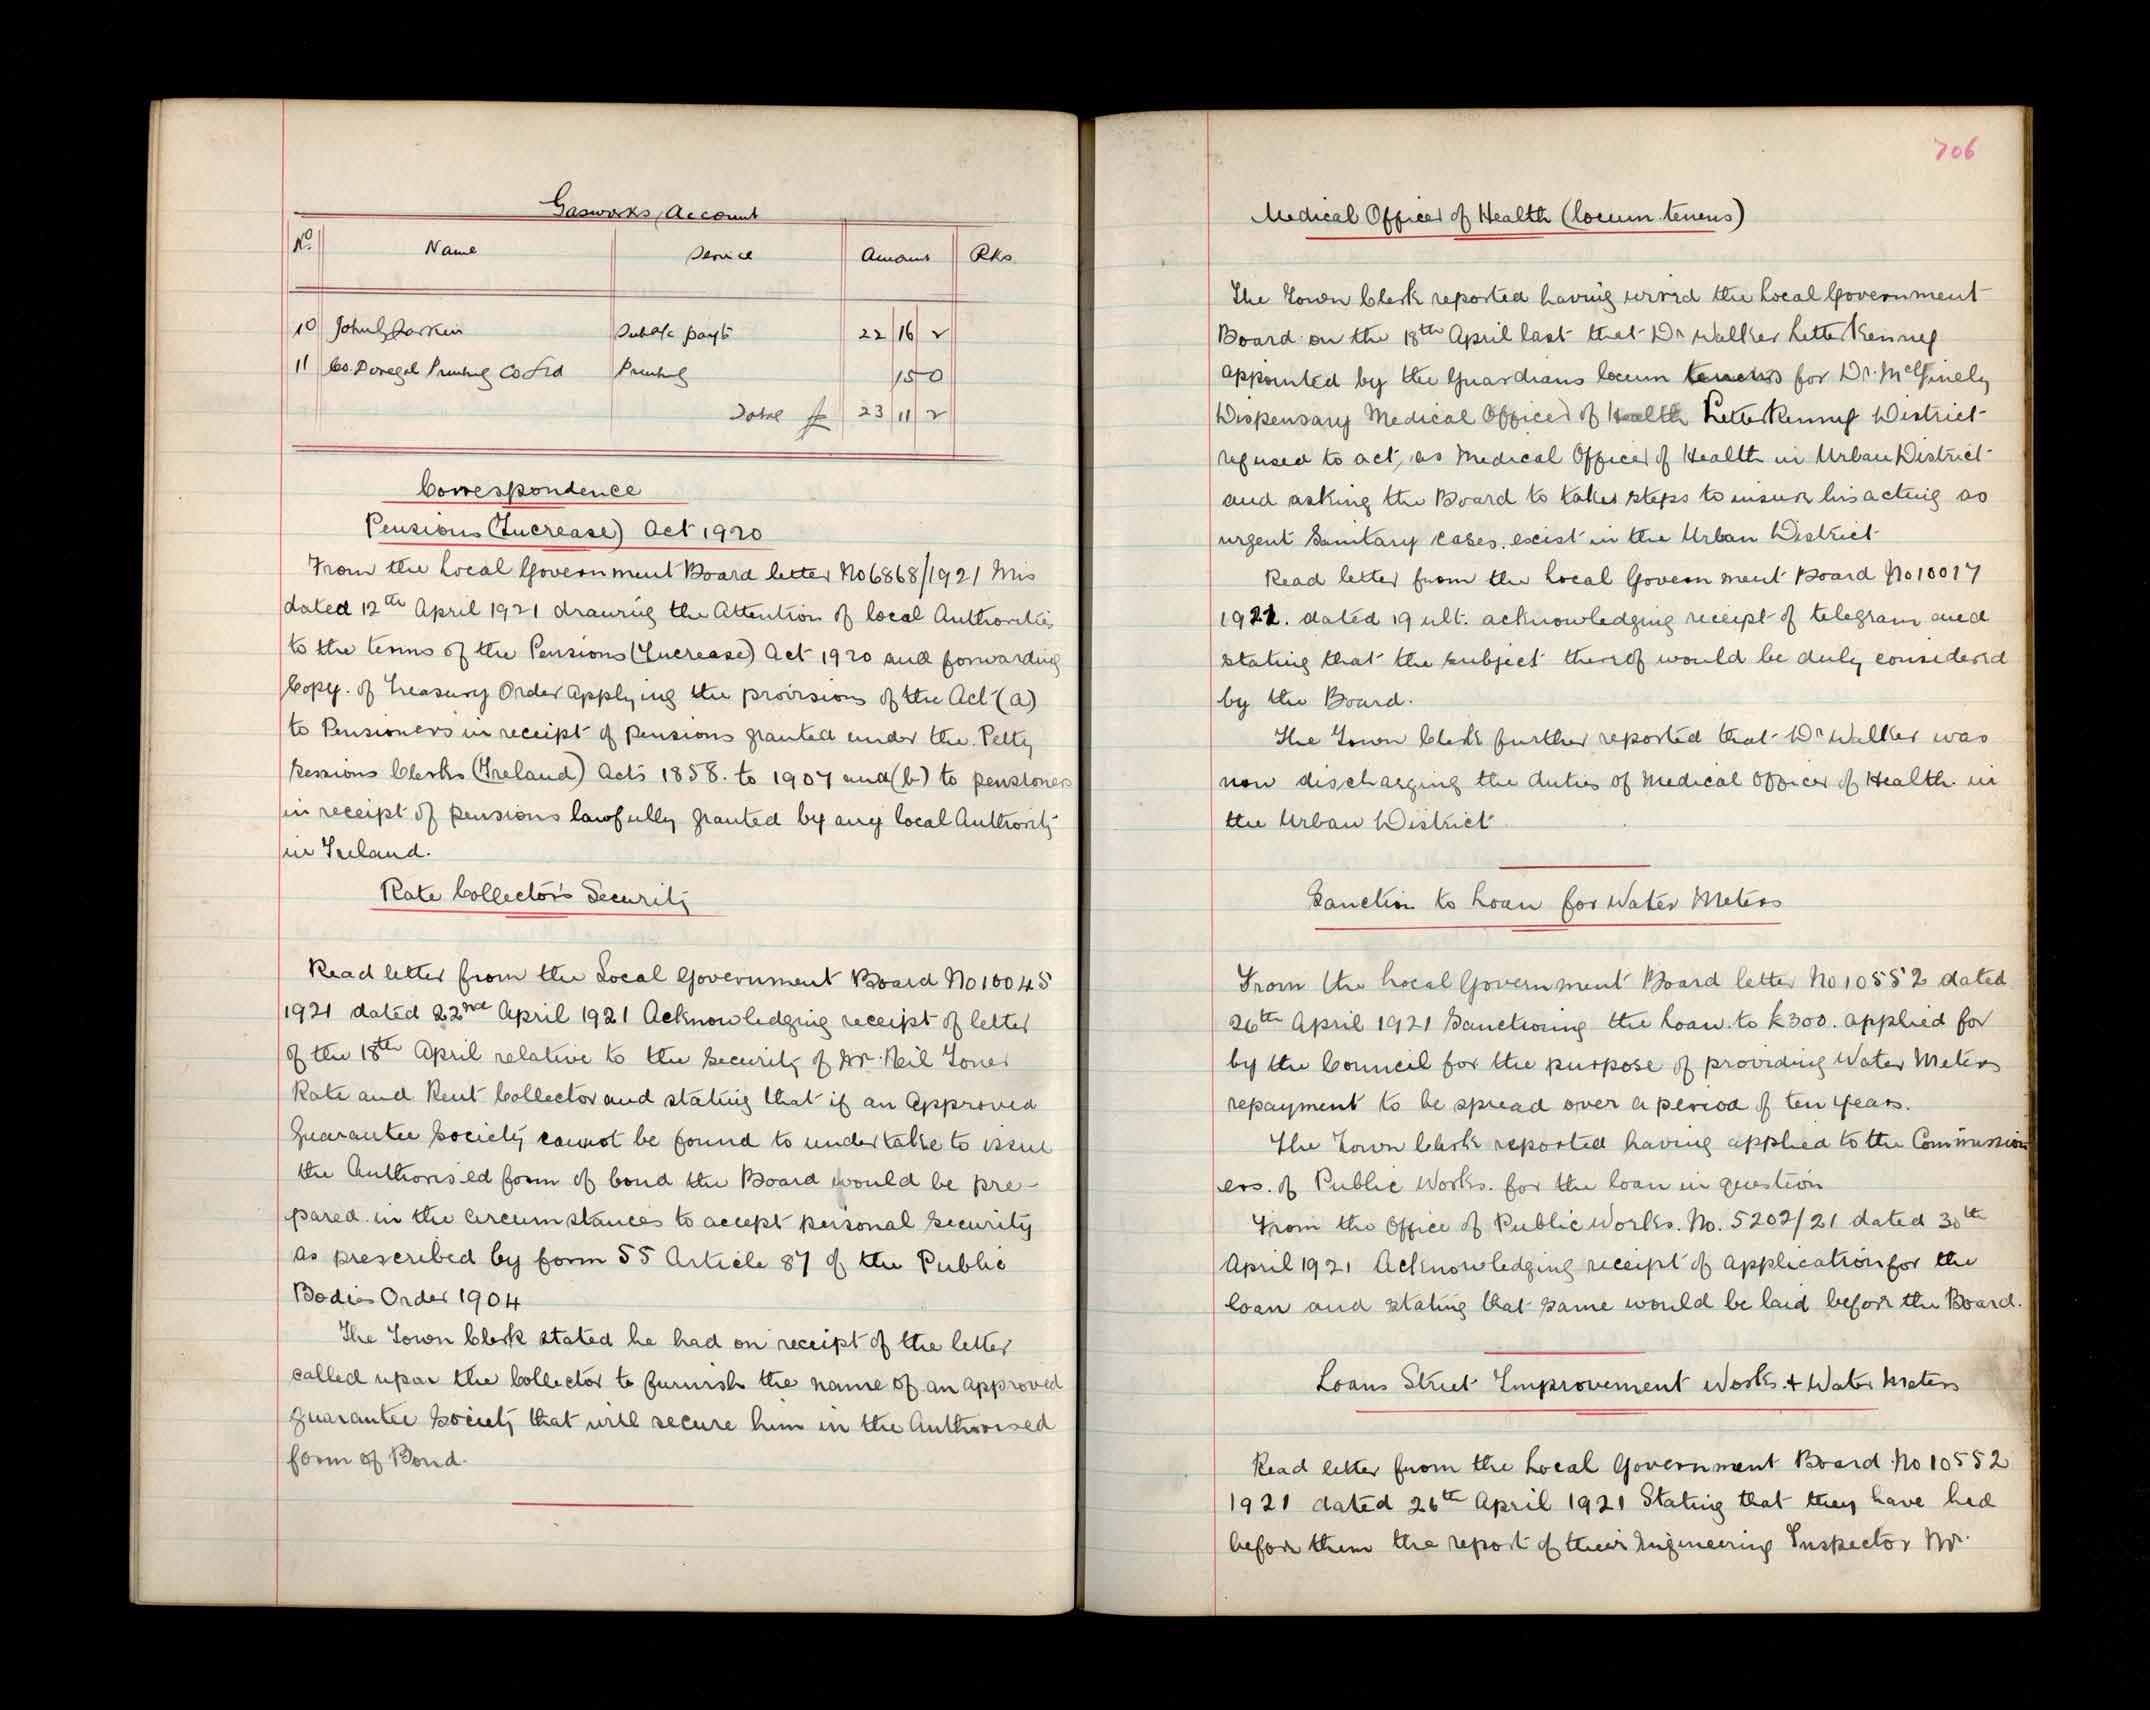 Gasworks Account
No. Name Service Amount Rks.
10 John Larkin Sub a/c payts 22 16 2
11 Co. Donegal Printing Co Ltd Printing 15 0
Total £ 23 11 2
Correspondence
Pensions (Increase) Act 1920
From the Local Government Board letter No 6868/1921 Mis
dated 12th April 1921 drawing the Attention of local Authorities
to the terms of the Pensions (Increase) Act 1920 and forwarding
Copy. of Treasury Order Applying the provisions of the Act (a)
to Pensioners in receipt of pensions granted under the Petty
Sessions Clerks (Ireland) Acts 1858. to 1907 and (b) to pensioners
in receipt of pensions lawfully granted by any local Authority
in Ireland.
Rate Collector's Security
Read letter from the Local Government Board No 10045
1921 dated 22nd April 1921 Acknowledging receipt of letter
of the 18th April relative to the security of Mr. Neil Toner
Rate and Rent Collector and stating that if an Approved
Guarantee Society cannot be found to undertake to issue
the Authorised form of bond the Board would be pre-
pared in the circumstances to accept personal security
as prescribed by form 55 Article 87 of the Public
Bodies Order 1904
The Town Clerk stated he had on receipt of the letter
called upon the Collector to furnish the name of an approved
guarantee Society that will secure him in the Authorised
form of Bond.
706
Medical Officer of Health (locum tenens)
The Town Clerk reported having wired the Local Government
Board on the 18th April last that Dr Walker Letterkenny
appointed by the Guardians locum tenens for Dr. McGinely
Dispensary Medical Officer of Health Letterkenny District
refused to act, as Medical Officer of Health in Urban District
and asking the Board to take steps to insure his acting as
urgent Sanitary cases. exist in the Urban District
Read letter from the Local Government Board No 10017
1921. dated 19 ult. acknowledging receipt of telegram and
stating that the subject thereof would be duly considered
by the Board.
The Town Clerk further reported that Dr Walker was
now discharging the duties of Medical Officer of Health. in
the Urban District
Sanction to Loan for Water Meters
From the Local Government Board letter No 10552 dated
26th April 1921 Sanctioning the Loan. to £300. applied for
by the Council for the purpose of providing Water Meters
repayment to be spread over a period of ten years.
The Town Clerk reported having applied to the Commission
ers. of Public Works. for the loan in question
From the Office of Public Works. No. 5202/21 dated 30th
April 1921 Acknowledging receipt of application for the
loan and stating that same would be laid before the Board.
Loans Street Improvement Works. & Water Meters
Read letter from the Local Government Board No 10552
1921 dated 26th April 1921 Stating that they have had
before them the report of their Engineering Inspector Mr.